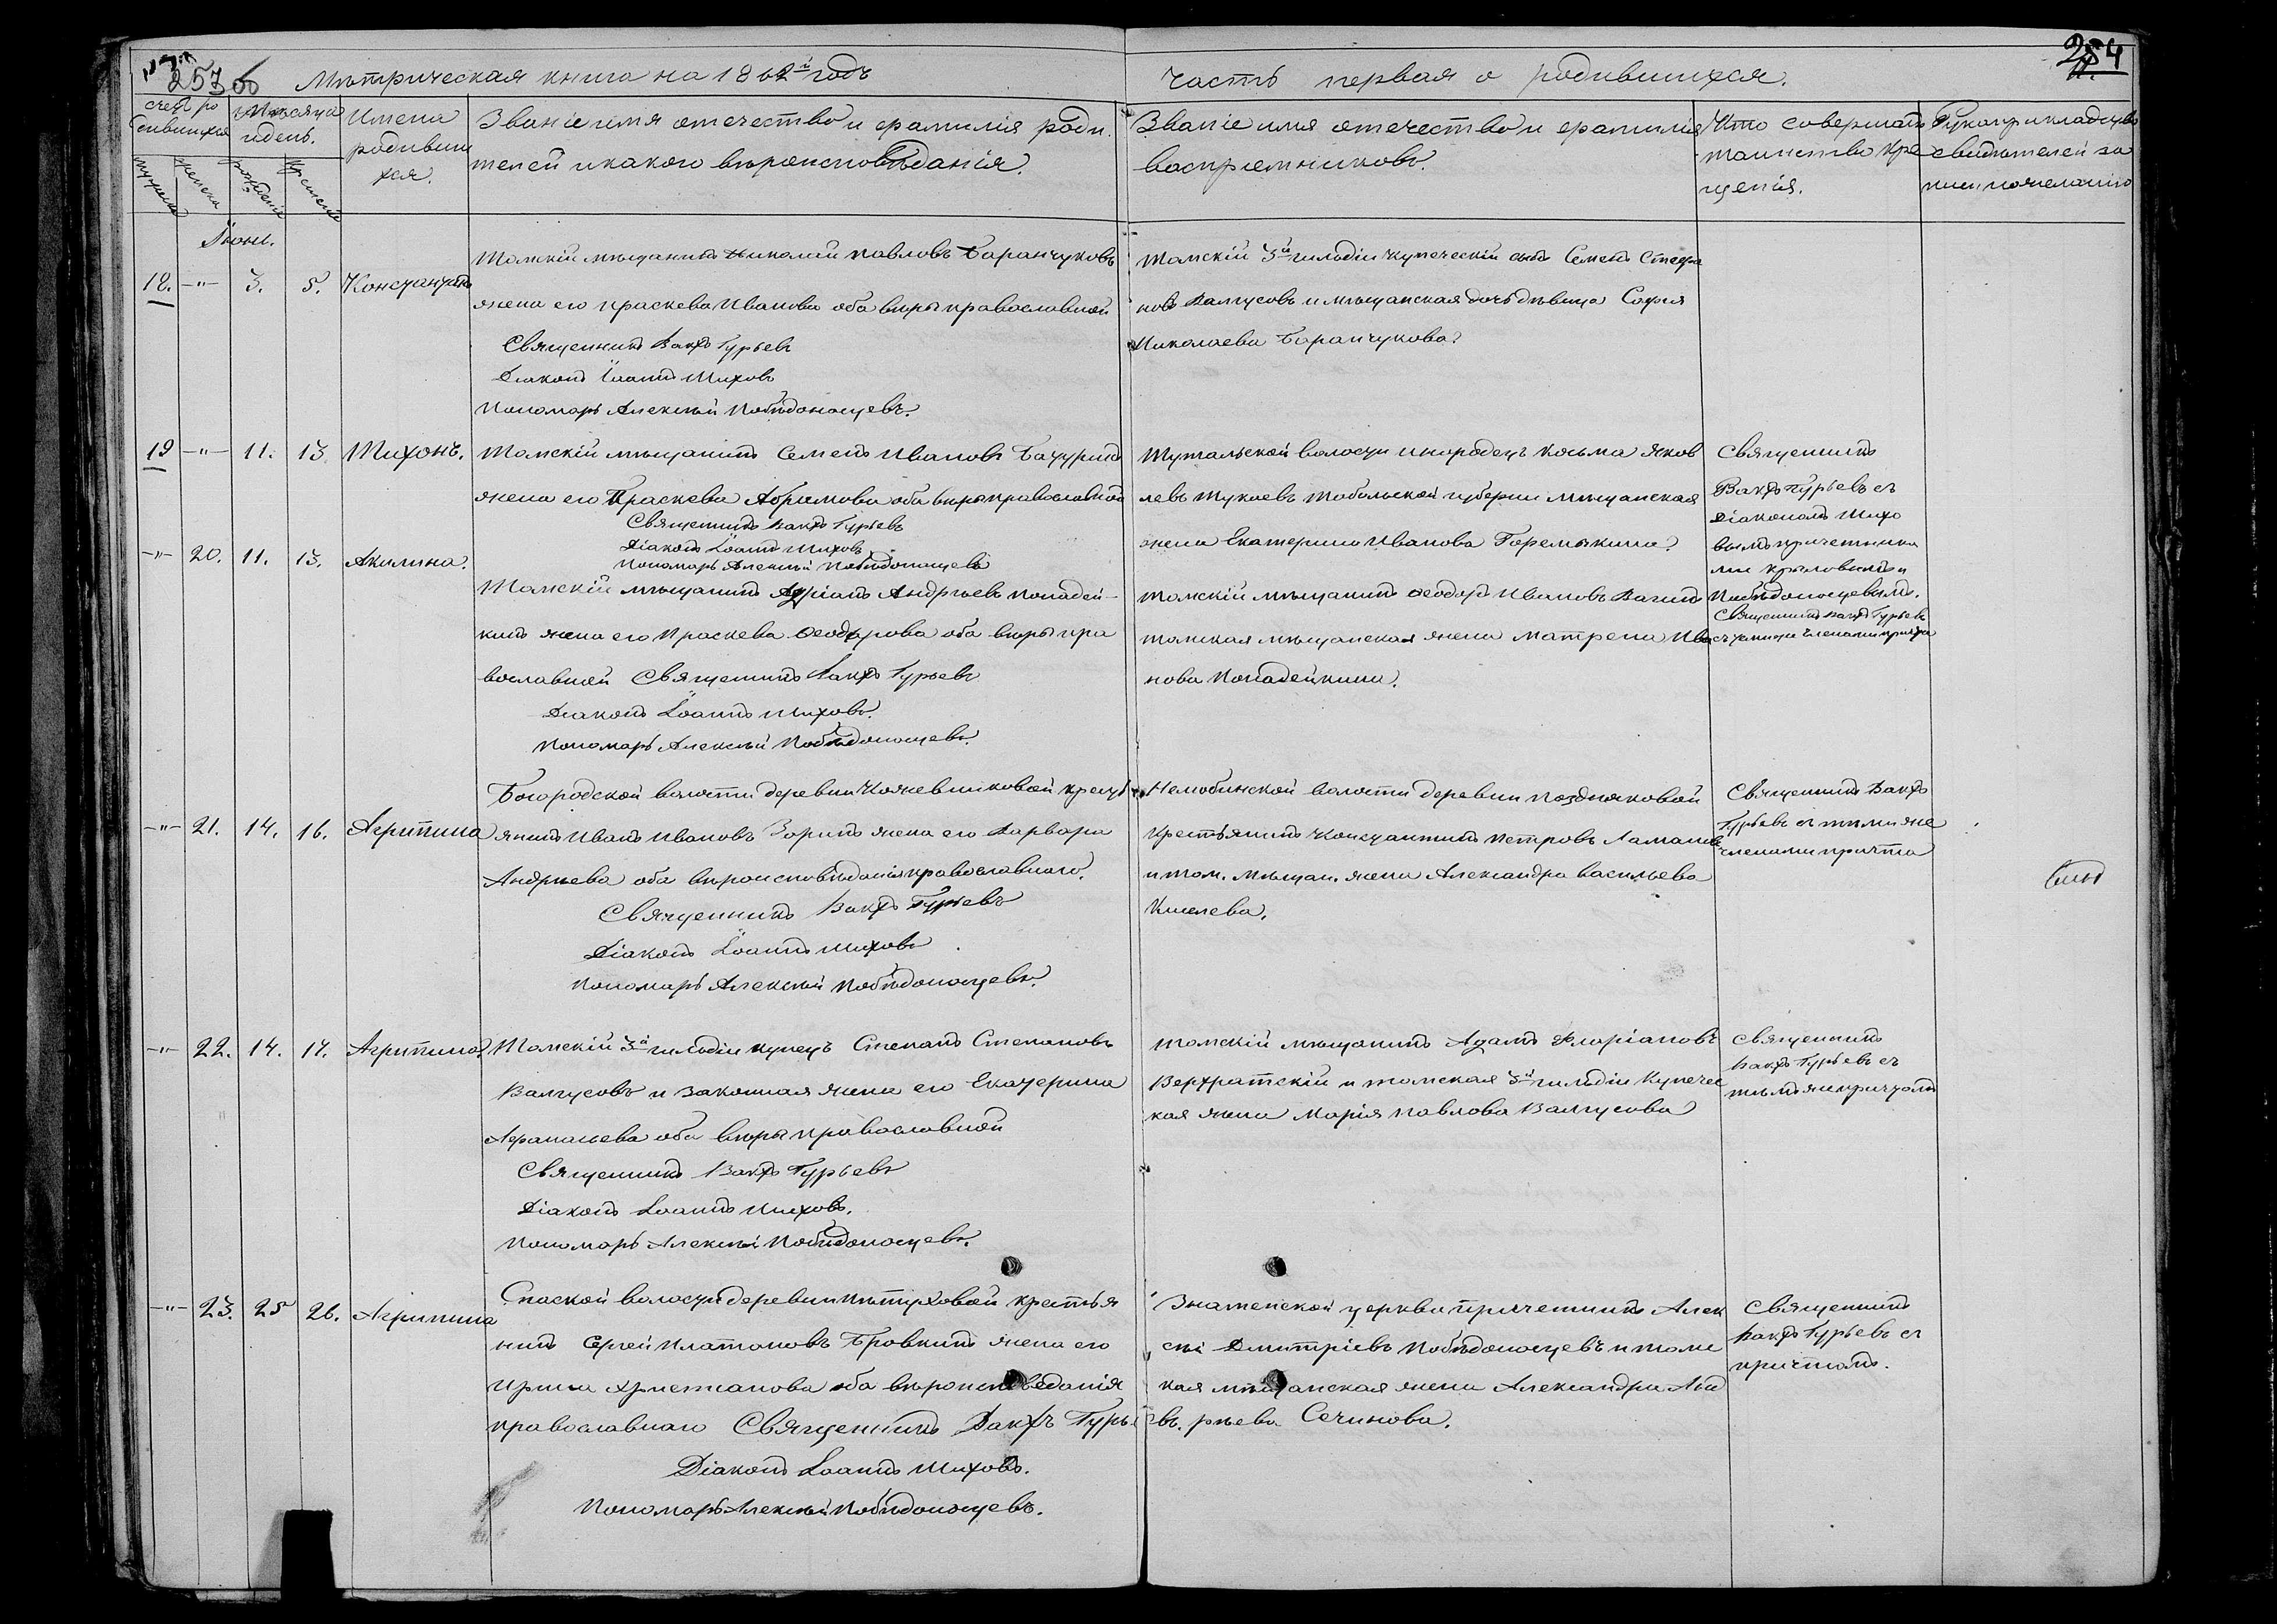 253 об
Метрическая книга на 1862й годъ
Часть первая о родившихся.
254
Счетъ родившихся
Мужеска
Женска
Месяца и день.
рожденіе
Крещеніе
Имена
родивши
хся.
Званіе имя отечество и фамилія роди
телей и какого вероисповѣданія.
Званіе имя отечество и фамилія
воспріемниковъ.
Кто совершалъ
таинство Кре
щенія.
Рукоприкладство
свидѣтелей за
писи по желанію
Іюнь.
18. -"- 3. 5. Константинъ
Томскій мѣщанинъ Николай Павловъ Баранчуковъ
жена его Праскева Иванова оба вѣры православной
Священникъ Вакхъ Гурьевъ
Діаконъ Іоаннъ Шиховъ
Пономарь Алексѣй Побѣдоносцевъ.
Томскій 3й гильдіи купеческій сынъ Семенъ Стефа
новъ Валгусовъ и мѣщанская дочь дѣвица Софія
Николаева Баранчукова.
19 -"- 11. 13 Тихонъ.
Томскій мѣщанинъ Семенъ Ивановъ Бачуринъ
жена его Праскева Абрамова оба вѣры православной
Священникъ Вакхъ Гурьевъ
Діаконъ Іоаннъ Шиховъ
Пономарь Алексѣй Побѣдоносцевъ
Тутальской волости инородецъ Косьма Яков
левъ Тукаевъ Тобольской губерніи мѣщанская
жена Екатерина Иванова Горемыкина.
Священникъ
Вакхъ Гурьевъ съ
Діакономъ Шихо
вымъ причетника
ми Крыловымъ и
Побѣдоносцевымъ.
-"- 20. 11. 13. Акилина.
Томскій мѣщанинъ Адріанъ Андрѣевъ Попадей-
кинъ жена его Праскева Ѳеодорова оба вѣры пра
вославной Священникъ Вакхъ Гурьевъ
Діаконъ Іоаннъ Шиховъ.
Пономарь Алексѣй Побѣдоносцевъ.
Томскій мѣщанинъ Ѳеодоръ Ивановъ Вагинъ
томская мѣщанская жена Матрена Ива
нова Попадейкина.
Священникъ Вакхъ Гурьевъ
съ членами причта
-"- 21. 14. 16. Агрипина
Богородской волости деревни Кожевниковой кресть
янинъ Иванъ Ивановъ Зоринъ жена его Варвара
Андрѣева оба вѣроисповѣданія православнаго.
Священникъ Вакхъ Гурьевъ
Діаконъ Іоаннъ Шиховъ
Пономарь Алексѣй Побѣдоносцевъ.
Нелюбинской волости деревни Поздняковой
Крестьянинъ Константинъ Петровъ
и том. мѣщан. жена Александра Васильева
Киселева.
Священникъ Вакхъ
Гурьевъ съ тѣми же
членами причта
-"- 22. 14. 17. Агрипина
Томскій 3й гильдіи купецъ Степанъ Степановъ
Валгусовъ и законная жена его Екатерина
Афанасьева оба вѣры православной
Священникъ Вакхъ Гурьевъ
Діаконъ Іоаннъ Шиховъ.
Пономарь Алексѣй Побѣдоносцевъ.
Томскій мѣщанинъ Адамъ Флоріановъ
Верхратскій и томская 3й гильдіи Купечес
кая жена Марія Павлова Валгусова
Священникъ
Вакхъ Гурьевъ съ
тѣмъ же причтомъ
-"- 23. 25 26. Агрипина
Спаской волости деревни Пѣтуховой крестья
нинъ Сергей Платоновъ Бровкинъ жена его
Ирина Христианова оба вѣроисповеданія
православнаго Священникъ Вакхъ Гурь
евъ.
Діаконъ Іоаннъ Шиховъ.
Пономарь Алексѣй Побѣдоносцевъ.
Знаменской церкви Причетникъ Алек
сѣй Дмитріевъ Побѣдоносцевъ и томс
кая мѣщанская жена Александра Анд
рѣева Сечинова.
Священникъ
Вакхъ Гурьевъ съ
причтомъ.